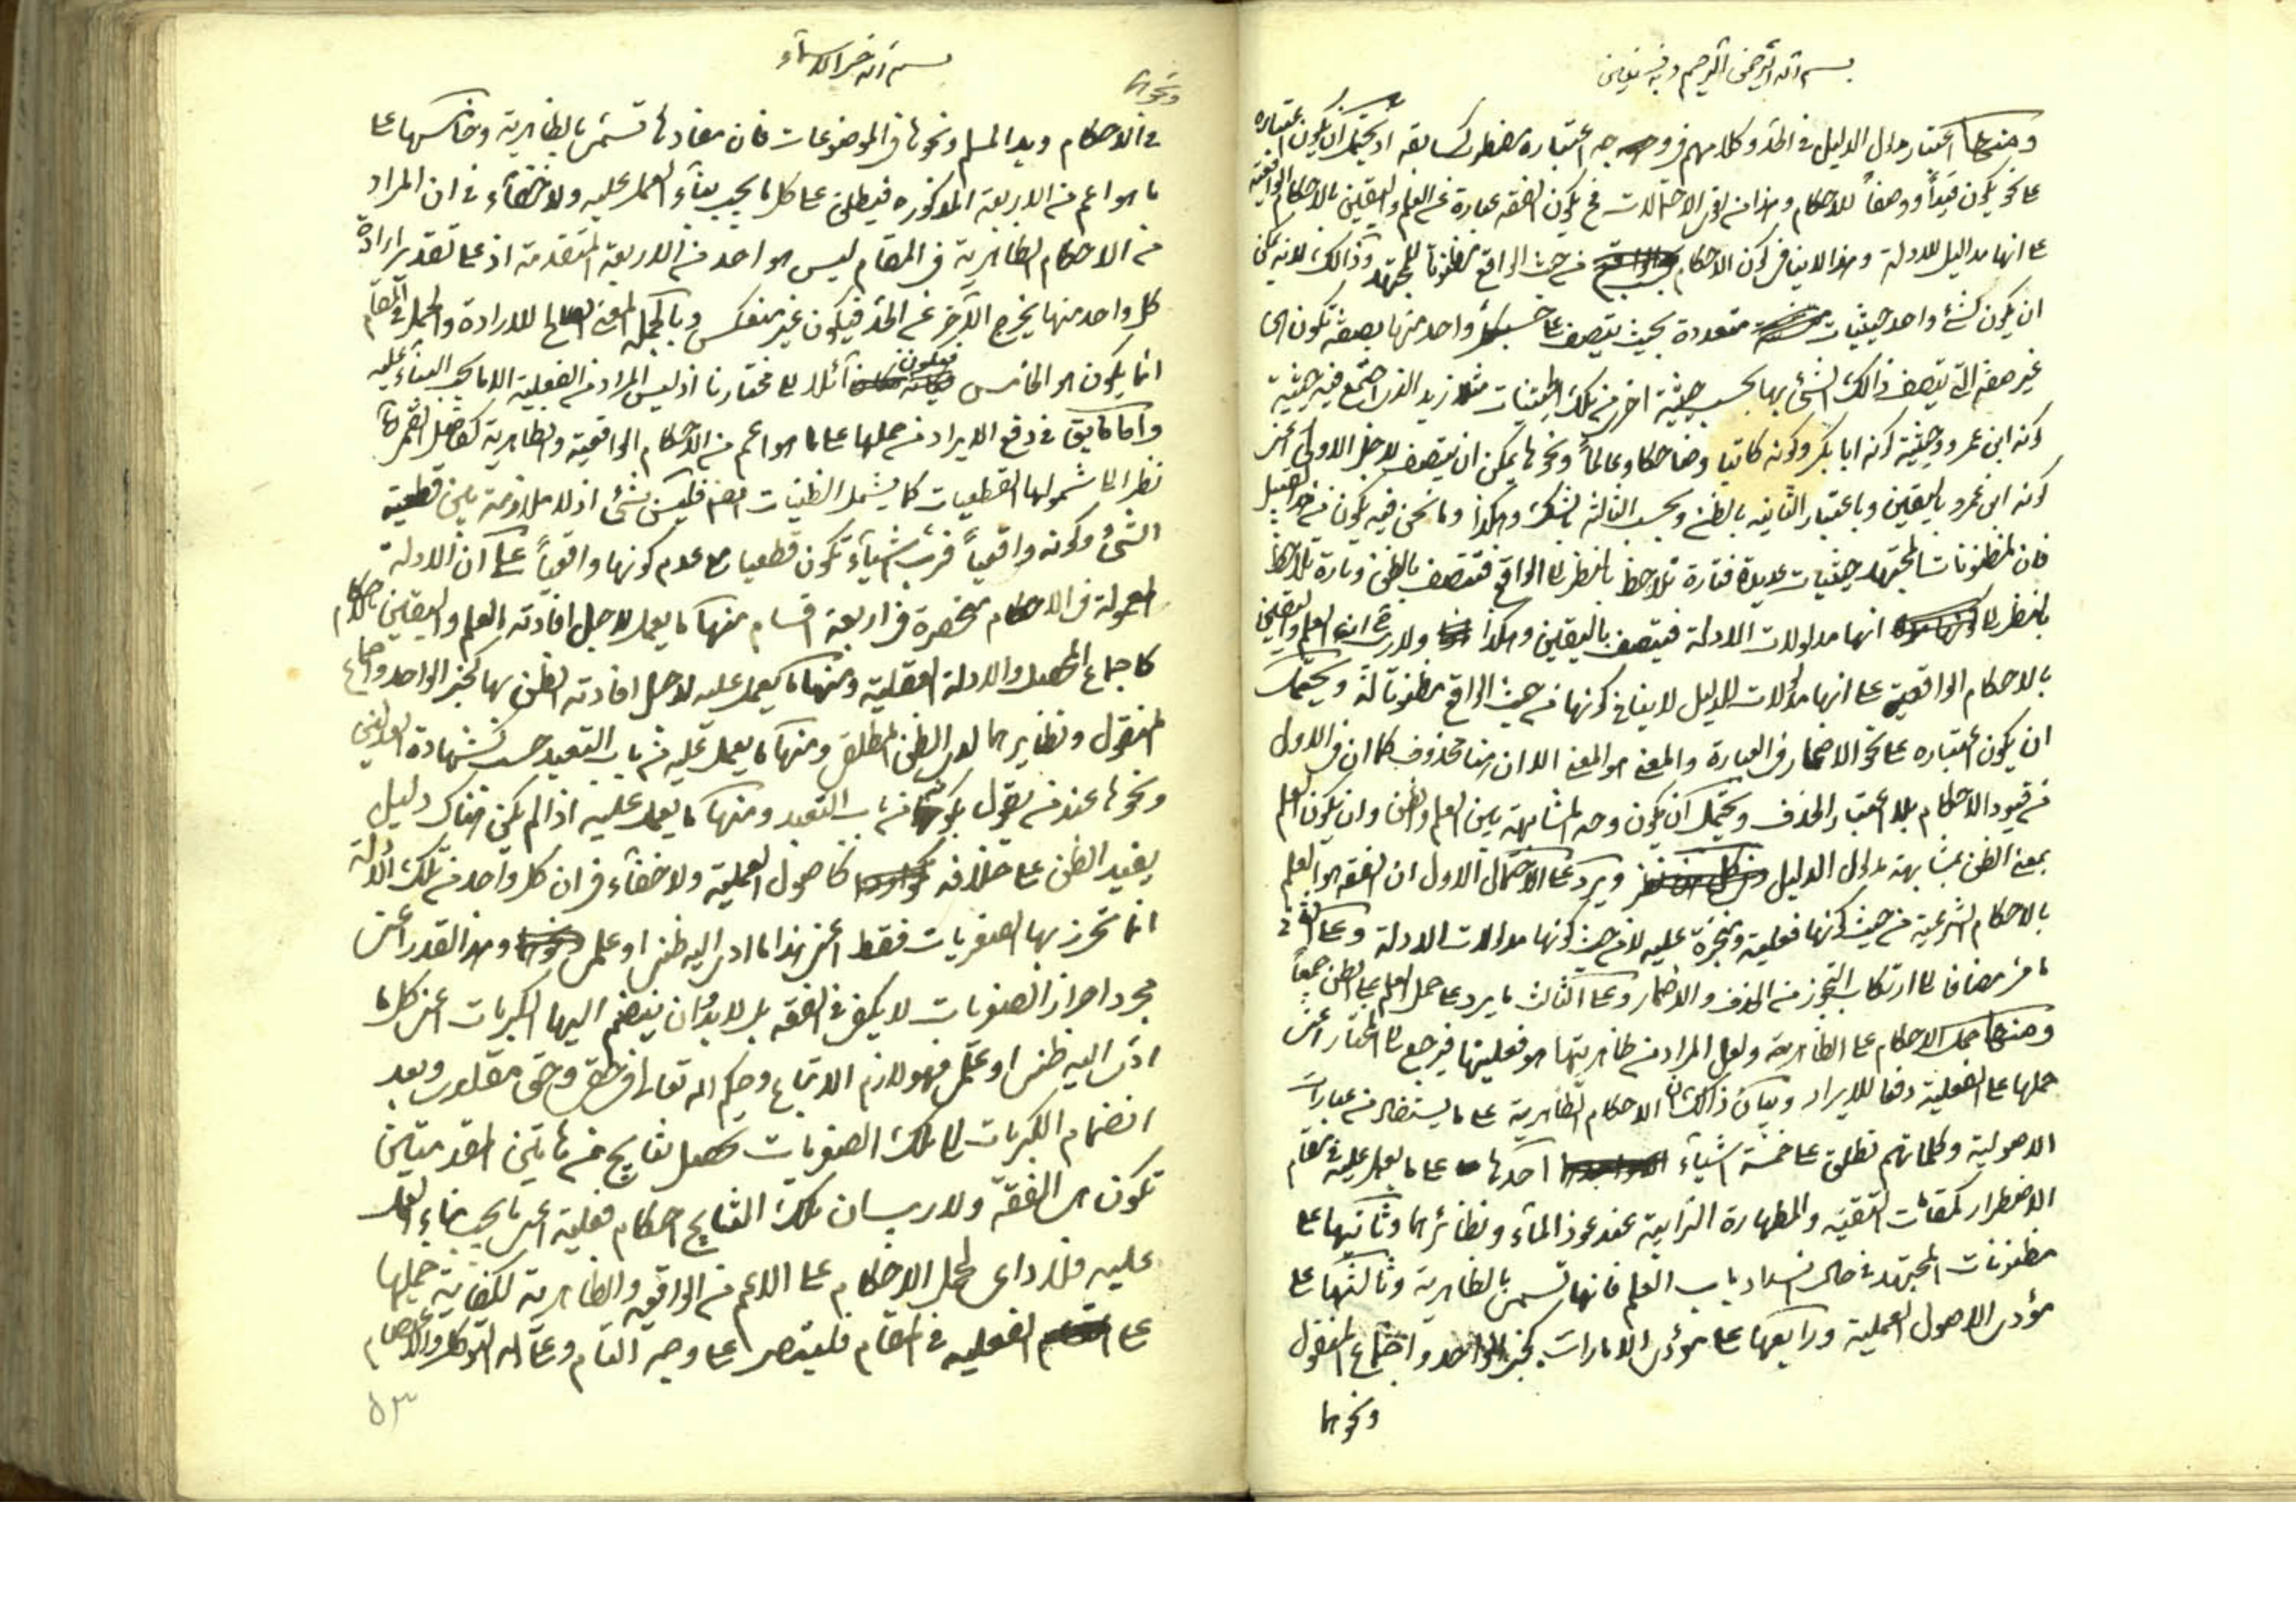 بسم الله الرحمن الرحيم وبه نستعين
ومنها اعتبار مدلول الدليل في الحد وكلامهم في وجه اعتباره مضطرب كسابقه اذ يحتمل ان يكون اعتباره
على نحو يكون قيداً ووصفاً للاحكام وهذا من اقوى الاحتمالات فح يكون الفقه عبارة عن العلم واليقين بالاحكام الواقعية
على انها مداليل للادلة وهذا لا ينافي كون الاحكام من حيث الواقع مظنوناً للمجتهد وذالك لانه يمكن
ان يكون لشئ واحد حيثيات متعددة بحيث يتصف على حسب كل واحد منها بصفة تكون
غير صفة التي يتصف ذالك الشئ بها بحسب حيثية اخرى من تلك الحيثيات مثلا زيد الذي اجتمع فيه حيثية
كونه ابن عمرو وحيثية كونه ابا بكر وكونه كاتبا وضاحكا وعالماً ونحوها يمكن ان يتصف بلحاظ الاولى اعنى
كونه ابن عمرو باليقين وباعتبار الثانية بالظن وبحسب الثالثة بالشك وهكذا وما نحن فيه يكون من هذا القبيل
فان لمظنونات المجتهد حيثيات عديدة فتارة تلاحظ بالنظر الى الواقع فتتصف بالظن وتارة تلاحظ
بالنظر الى انها مدلولات الادلة فيتصف باليقين وهكذا ولا ريب في ان العلم واليقين
بالاحكام الواقعية على انها مدلولات للدليل لا ينافي كونها من حيث الواقع مظنونا له ويحتمل
ان يكون اعتباره على نحو الاضمار في العبارة والمعنى هو المعنى الا ان هنا محذوف كما ان في الاول
من قيود الاحكام بلا اعتبار الحذف ويحتمل ان يكون وجه المشابهة بين العلم والظن وان يكون العلم
بمعنى الظن بمشابهة مدلول الدليل ويرد على الاحتمال الاول ان الفقه هو العلم
بالاحكام الشرعية من حيث كونها فعلية ومنجزة عليه لا من حيث كونها مدلولات الادلة وعلى الثاني
ما مر مضافا الى ارتكاب التجوز من الحذف والاضمار وعلى الثالث ما يرد على حمل العلم على الظن جمعاً
ومنها حمل الاحكام على الظاهرية ولعل المراد من ظاهريتها هو فعليتها فيرجع الى المختار اعنى
حملها على الفعلية دفعا للايراد وبيان ذالك ان الاحكام الظاهرية على ما يستفاد من عبارات
الاصولية وكلماتهم تطلق على خمسة اشياء احدها على ما يعمل عليه في مقام
الاضطرار كمقامات التقية والطهارة الترابية عند عوز الماء ونظائرهما وثانيها على
مظنونات المجتهد في حال انسداد باب العلم فانها تسمى بالظاهرية وثالثها على
مؤدى الاصول العملية ورابعها على مؤدى الامارات كخبر الواحد واجماع المنقول
ونحوهما
بسم الله خير الاسماء
ونحوهما
في الاحكام ويد المسلم ونحوها في الموضوعات فان مفادها تسمى بالظاهرية وخامسها على
ما هو اعم من الاربعة المذكورة فيطلق على كل ما يجب بناء العمل عليه ولا خفاء في ان المراد
من الاحكام الظاهرية في المقام ليس هو احد من الاربعة المتقدمة اذ على تقدير ارادة
كل واحد منها يخرج الآخر عن الحد فيكون غير منعكس وبالجملة المعنى الصالح للارادة والحمل في المقام
انما يكون هو الخامس فيكون آئلا الى مختارنا اذ ليس المراد من الفعلية الا ما يجب البناء عليه
واما ما يق في دفع الايراد من حملها على ما هو اعم من الاحكام الواقعية والظاهرية كفاضل القمي ره
نظرا الى شمولها القطعيات كما يشمل الظنيات ايضا فليس بشئ اذ لا ملازمة بين قطعية
الشئ وكونه واقعياً فرب اشياء تكون قطعيا مع عدم كونها واقعياً على ان الادلة
المعمولة في الاحكام منحصرة في اربعة اقسام منها ما يعمل لاجل افادته العلم واليقين بالاحكام
كاجماع المحصل والادلة العقلية ومنها ما يعمل عليه لاجل افادته الظن بها كخبر الواحد واجماع
المنقول ونظايرهما لدى الظن المطلق ومنها ما يعمل عليه من باب التعبد حسب كشهادة العدلين
ونحوها عند من يقول بكونها من باب التعبد ومنها ما يعمل عليه اذا لم يكن هناك دليل
يفيد الظن على خلافه كاصول العملية ولا خفاء في ان كل واحد من تلك الادلة
انما تحرز بها الصغريات فقط اعنى هذا ما ادى اليه ظنى او علمى وهذا القدر اعنى
مجرد احراز الصغريات لا يكفى في الفقه بل لا بد وان ينضم اليها الكبريات اعنى كل ما
ادى اليه ظنى او علمى فهو لازم الاتباع وحكم الله تعالى في حقى وحق مقلدى وبعد
انضمام الكبريات الى تلك الصغريات تحصل نتايج من هاتين المقدمتين
تكون هى الفقه ولا ريب ان تلك النتايج احكام فعلية اعنى ما يجب بناء العمل
عليه فلا داعى لحمل الاحكام على الاعم من الواقعية والظاهرية لكفاية حملها
على الفعلية في المقام فليتدبر على وجه التام وعلى الله التوكل والاعتصام
٥٣